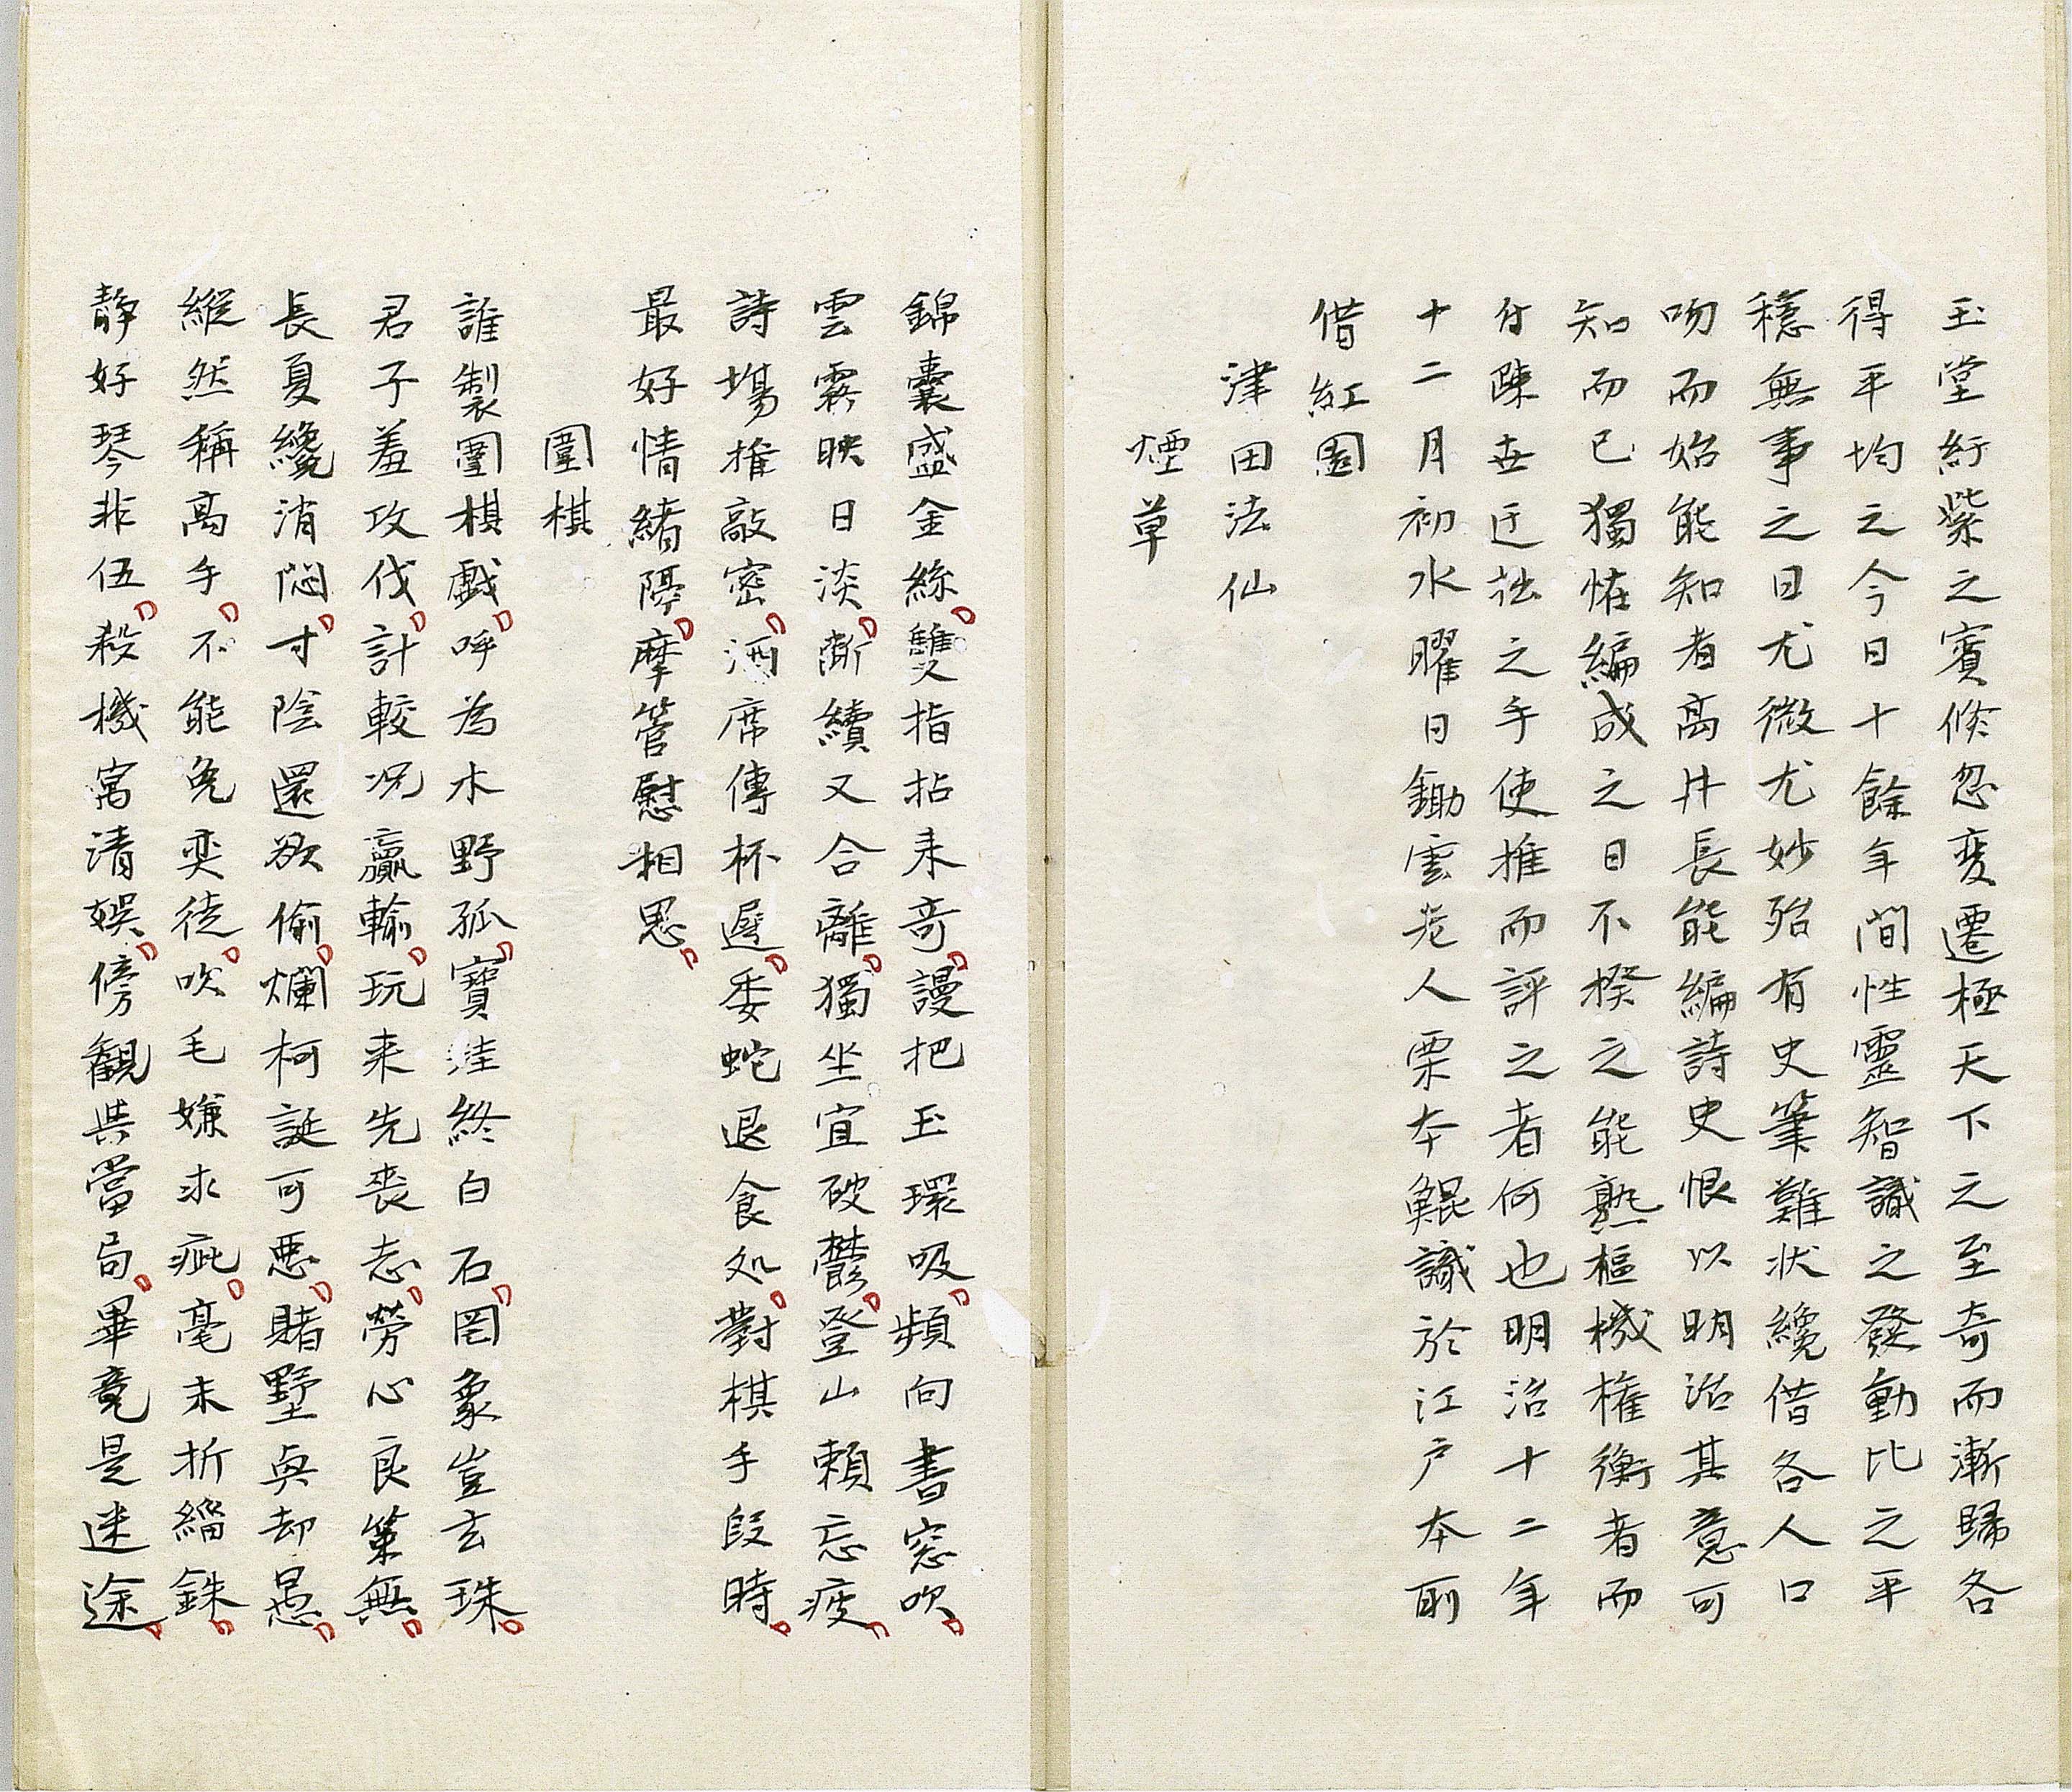 玉堂紆紫之賓倐忽変遷極天下之至奇而漸歸各
得平均之今日十餘年間性靈智識之發動比之平
穏無事之日尤微尤妙殆有史筆難状纔借各人口
吻而始能知者高井長能編詩史恨以明治其意可
知而已獨恠編成之日不揆之能熟樞機権衡者而
付陳世迂拙之手使推而評之者何也明治十二年
十二月初水曜日鋤雲老人栗本鯤識於江戸本所
借紅園
津田法仙
煙草
錦囊盛金絲雙指拈来奇謾把玉環吸頻向書窓吹
雲霧映日淡断續又合離獨坐宜破鬱登山頼忘疲
詩場推敲密酒席傳杯遲委蛇退食処對棋手段時
最好情緒障摩管慰相思
圍棋
誰製圍棋戯呼為木野孤寶洼終白石罔象豈玄珠
君子羞攻伐計較况贏輸玩来先喪志勞心良策無
長夏纔消悶寸陰還欲偷爛柯誕可悪賭墅與却愚
縱然稱高手不能免奕徒吹毛嫌求疵毫末折緇銖
靜好琴非伍殺機寓清娯傍観與當局畢竟是迷途